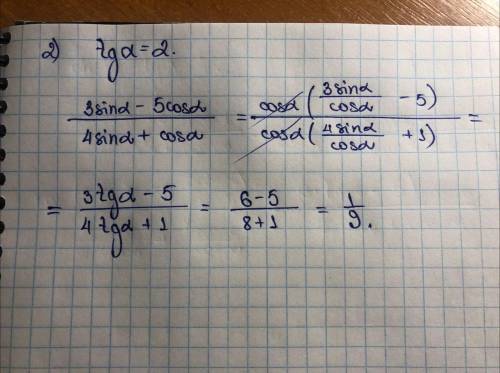 2) tgα = 2.
(3sinα − 5cosα)/(4sinα + cosα) = (cosα(3sinα/cosα − 5))/(cosα(4sinα/cosα + 1)) =
= (3tgα − 5)/(4tgα + 1) = (6−5)/(8+1) = 1/9.